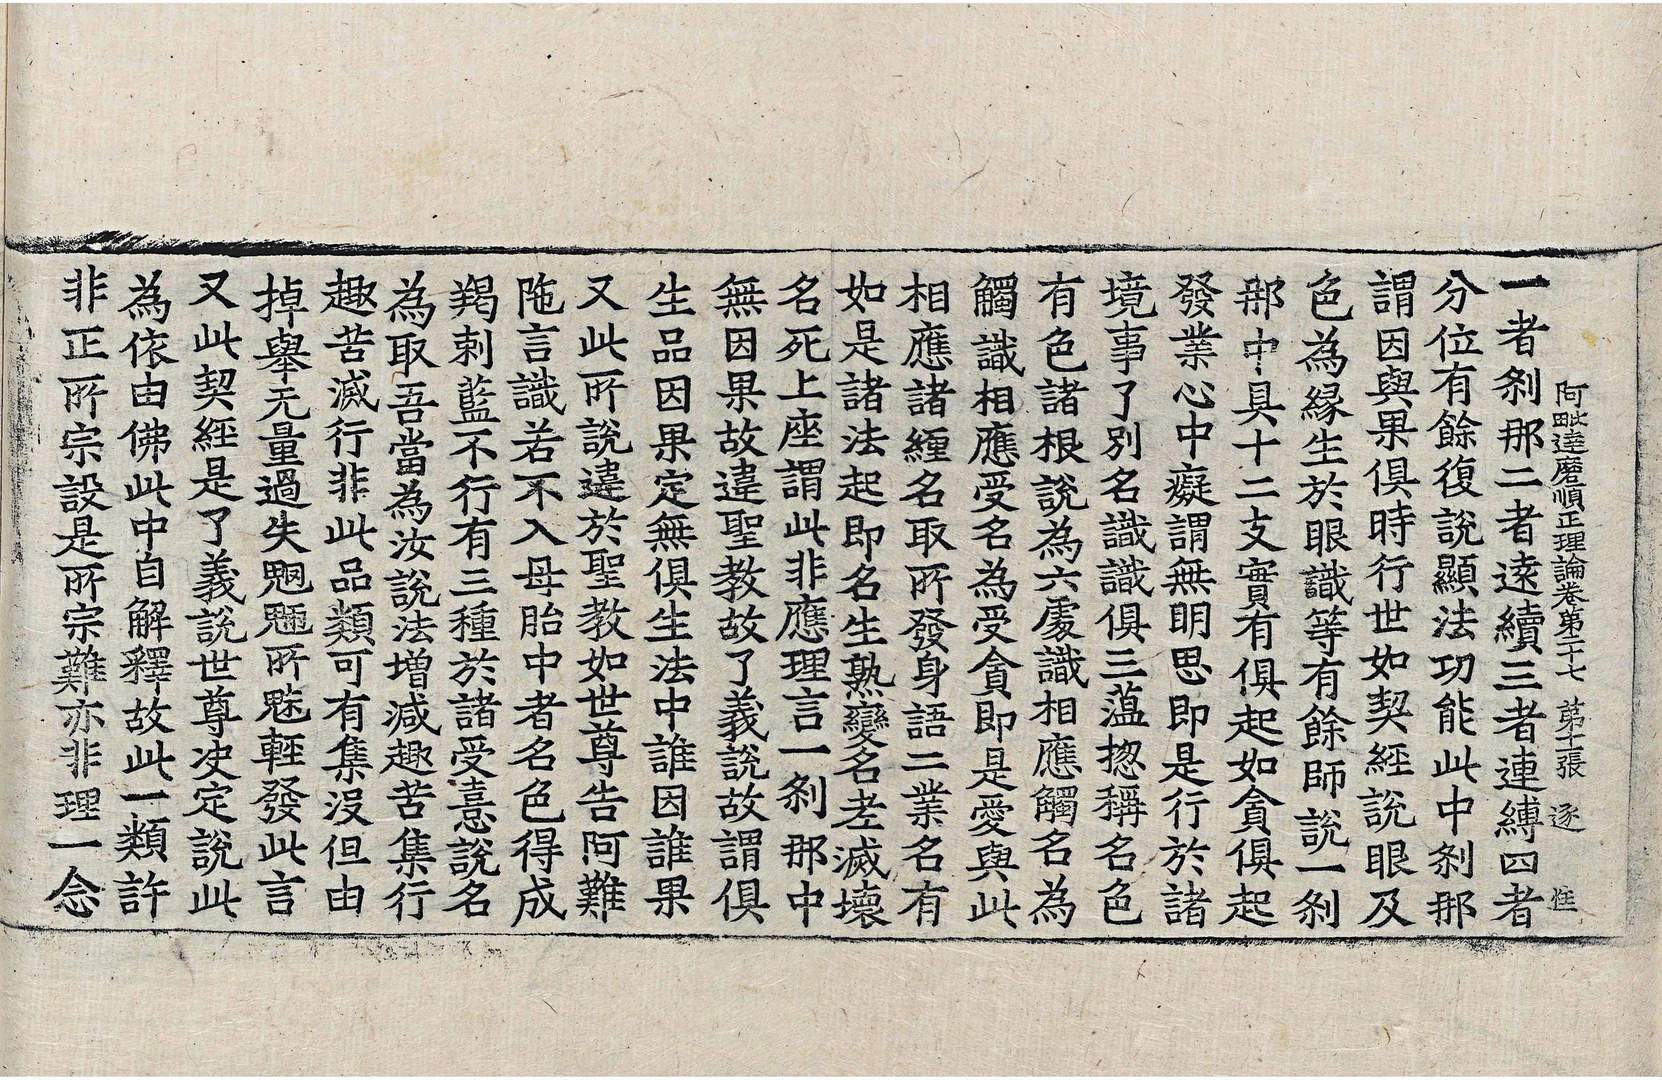 阿毗達磨順正理論卷第二十七 第十張 逐 性
一者刹那二者遠續三者連縛四者
分位有餘復說顯法功能此中刹那
謂因與果俱時行世如契經說眼及
色為緣生於眼識等有餘師說一刹
那中具十二支實有俱起如貪俱起
發業心中癡謂無明思即是行於諸
境事了別名識識俱三蕰揔稱名色
有色諸根說為六處識相應觸名為
觸識相應受名為受貪即是愛與此
相應諸纏名取所發身語二業名有
如是諸法起即名生熟變名老滅壞
名死上座謂此非應理言一刹那中
無因果故違聖教故了義說故謂俱
生品因果定無俱生法中誰因誰果
又此所說違於聖教如世尊告阿難
陁言識若不入母胎中者名色得成
羯剌藍不行有三種於諸受憙說名
為取吾當為汝說法增減趣苦集行
趣苦滅行非此品類可有集沒但由
掉舉无量過失魍魎所魅輕發此言
又此契經是了義說世尊决定說此
為依由佛此中自解釋故此一類許
非正所宗設是所宗難亦非理一念